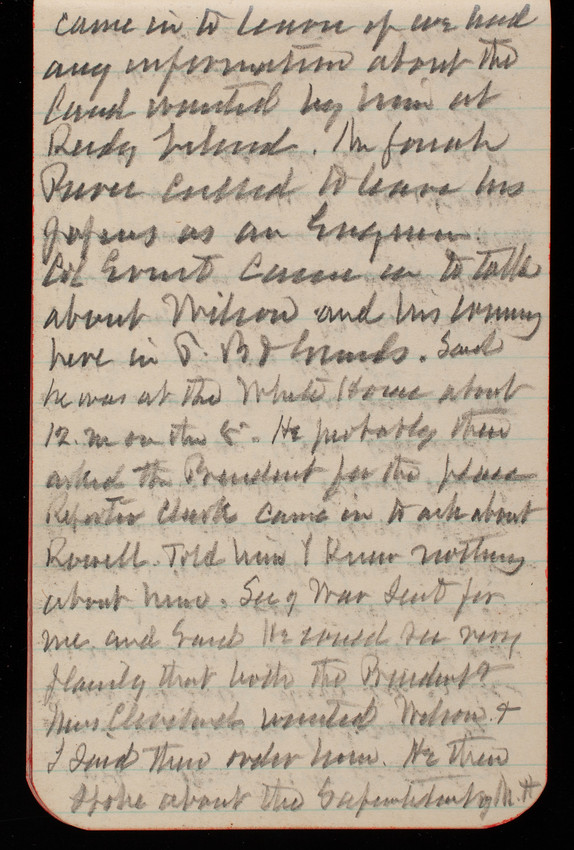 came in to learn if we had
any information about the
Land wanted by him at
Island. Mr
called to leave his
as an Engineer.
Col Ernst came in to talk
about Wilson and his coming
here in P. B & Grounds. Said
he was at the White House about
12. m on the 5". He probably then
asked the President for the place
Reporter Clark came in to ask about
Rowell. Told him I knew nothing
about him. Secy War sent for
me and said He could see very
plainly that both the President &
Mrs Cleveland wanted Wilson &
I said then order him. He then
spoke about the